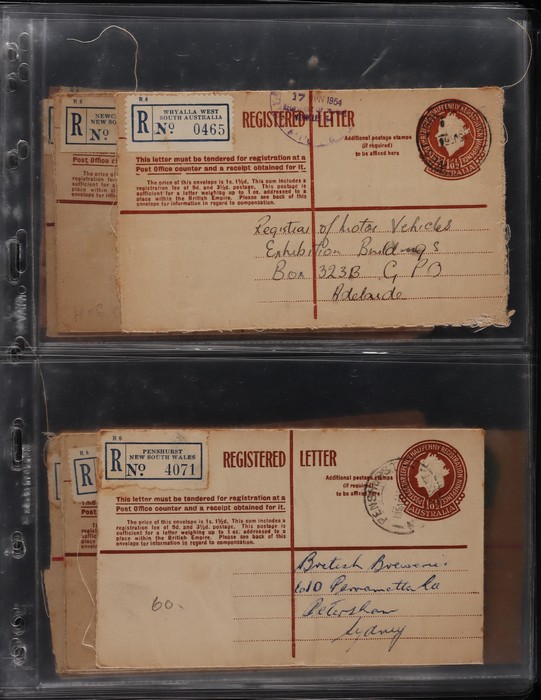 R 6
R 6
R 6
NEWC
NEW SO
R No
WHYALLA WEST
SOUTH AUSTRALIA
R No 0465
REGISTERED LETTER
17 1954
Additional postage stamps
(if required)
to be affixed here
AUSTRALIA
Post Office
This letter must be tendered for registration at a
Post Office counter and a receipt obtained for it.
The price of this envelope is 1s. 1½d. This sum includes a
registration fee of 9d. and 3½d. postage. This postage is
sufficient for a letter weighing up to 1 oz. addressed to a
place within the British Empire. Please see back of this
envelope for information in regard to compensation.
Registrar of Motor Vehicles
Exhibition Buildings
Box 323B G PO
Adelaide
R 6
R 6
R
PENSHURST
NEW SOUTH WALES
R No 4071
REGISTERED LETTER
Additional postage stamps
(if required)
to be affixed here
PENSHURST
AUSTRALIA
This letter must be tendered for registration at a
Post Office counter and a receipt obtained for it.
The price of this envelope is 1s. 1½d. This sum includes a
registration fee of 9d. and 3½d. postage. This postage is
sufficient for a letter weighing up to 1 oz. addressed to a
place within the British Empire. Please see back of this
envelope for information in regard to compensation.
60.
British
Petersham
Sydney